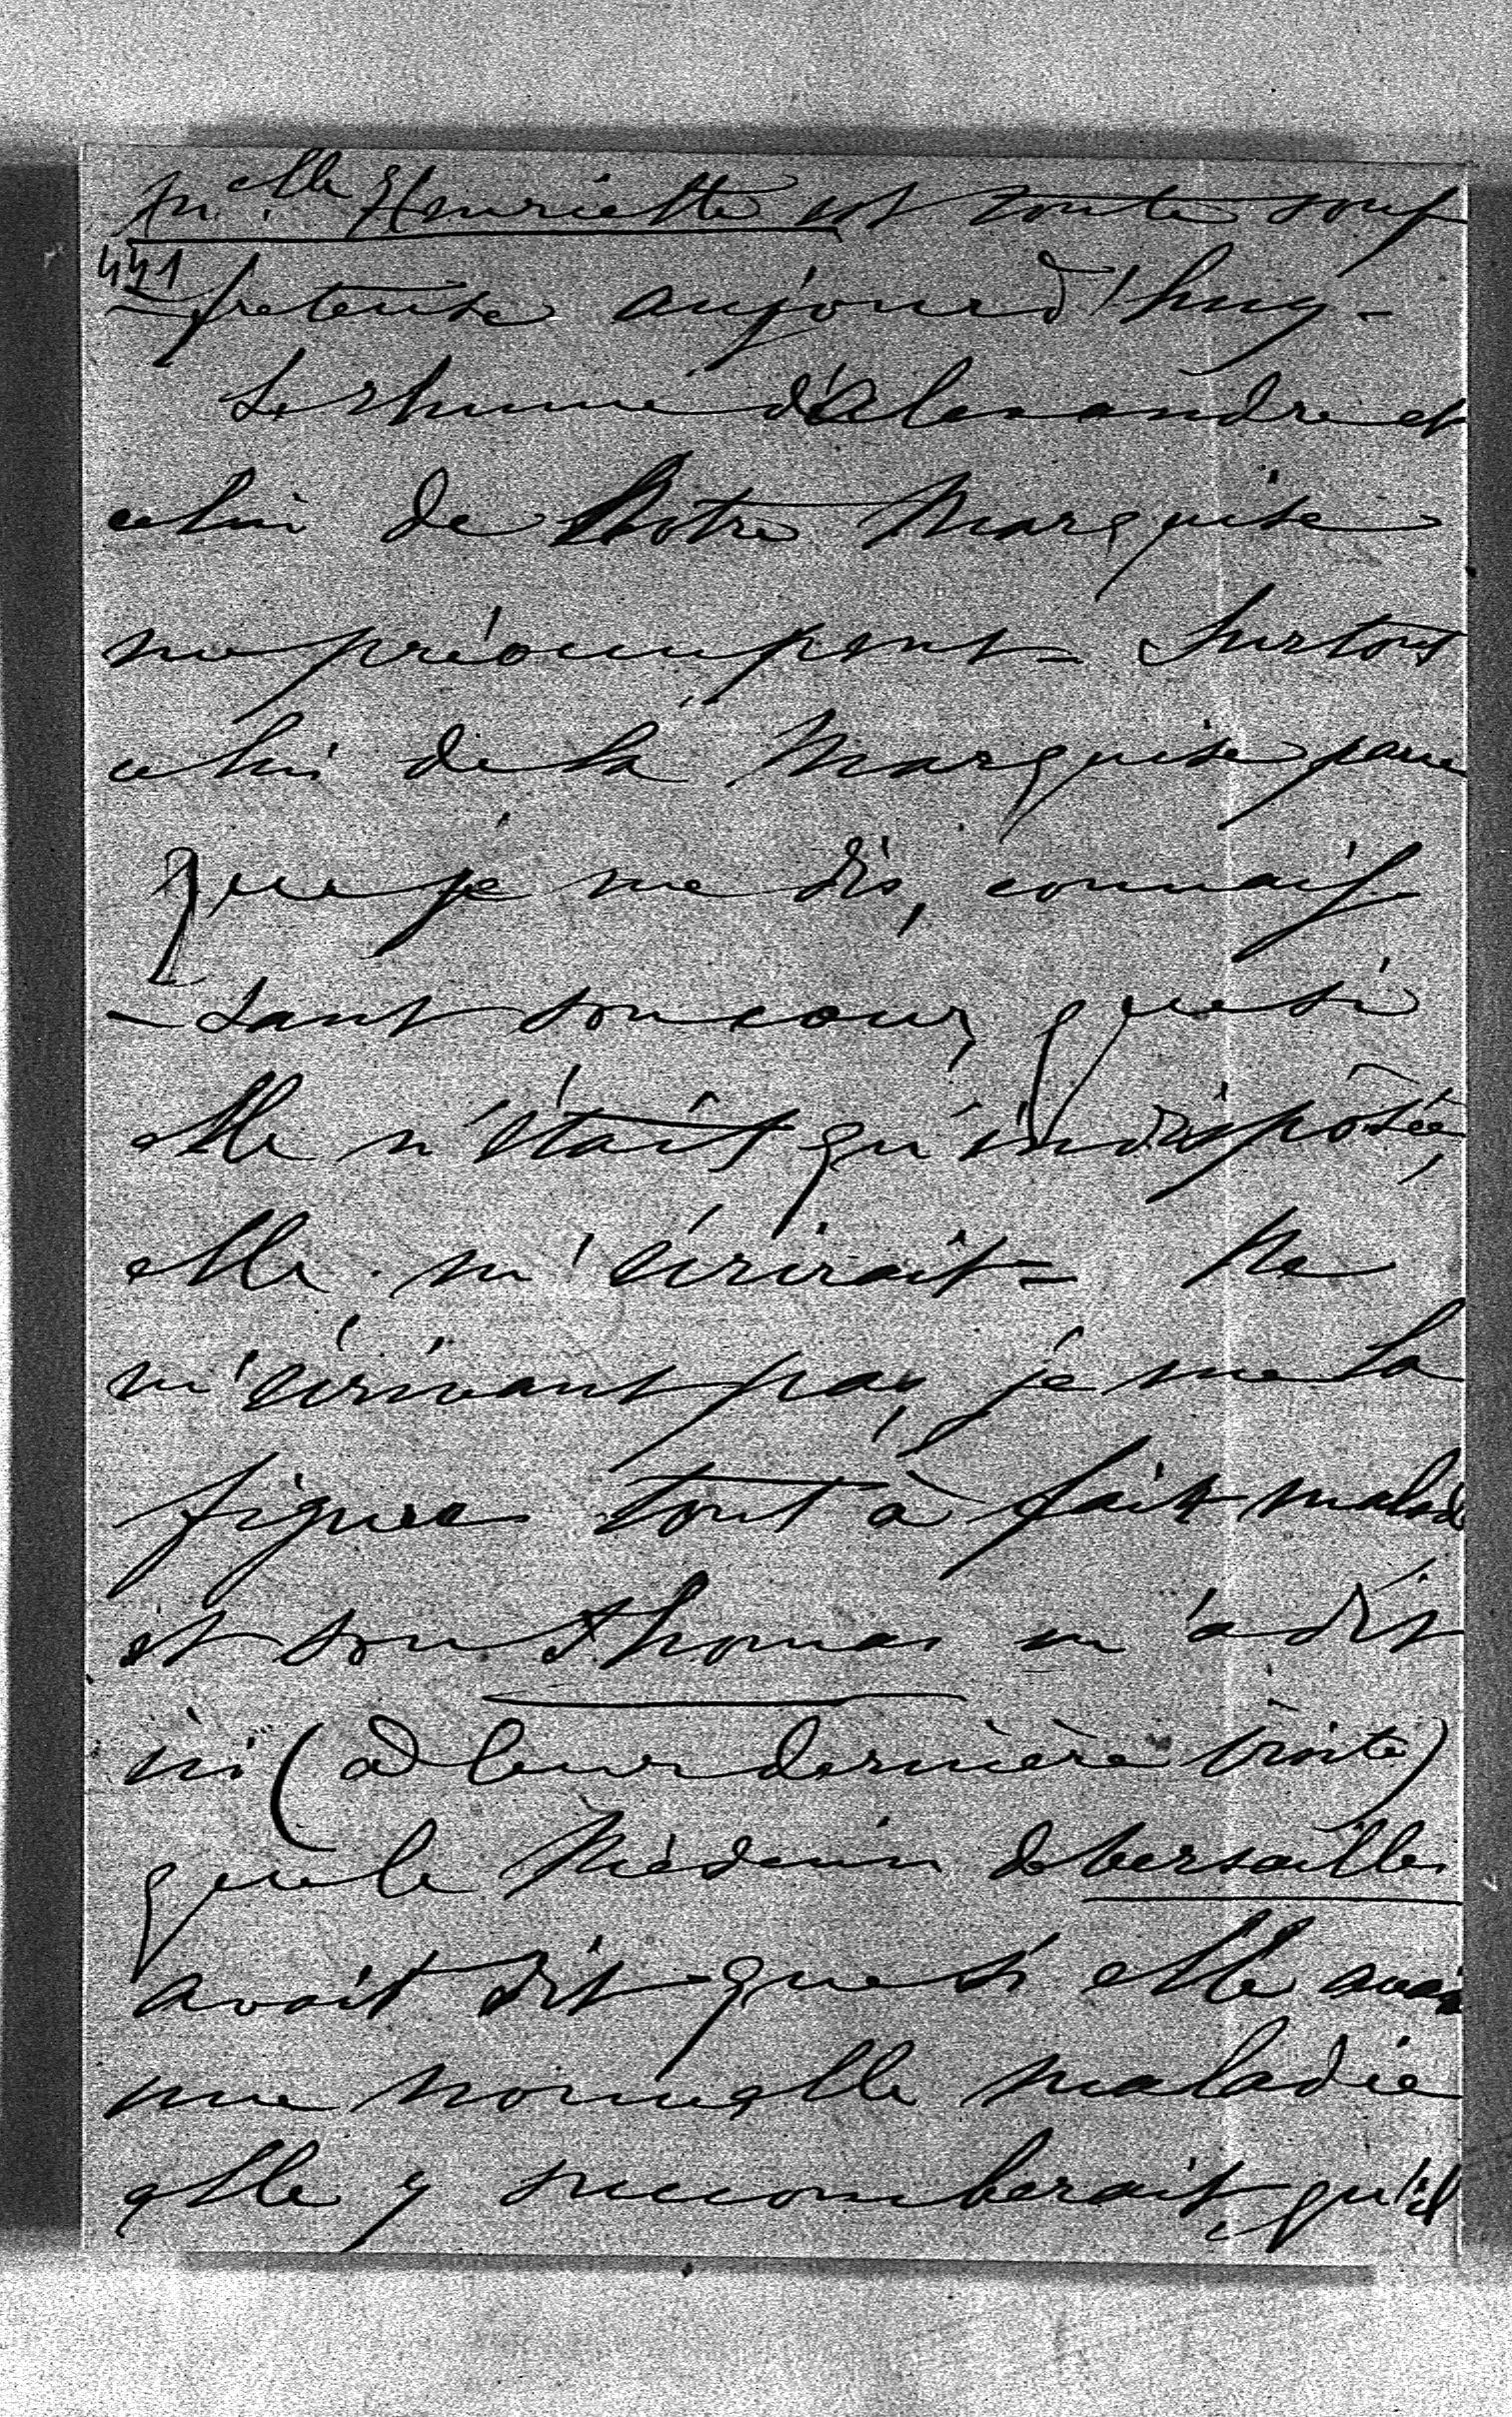 M.elle Henriette est toute souf
441
-freteuse aujourd'huy -
Le rhume d'Alexandre et
celui de Notre Marquise
me préoccupent - Surtout
celui de la Marquise parce
que je me dis, connais
-sant son cœur, que si
elle n'était qu'indisposée,
elle m'écrirait - Ne
m'écrivant pas, je me la
figure tout à fait malade
et son Thomas m'a dit
ici (à leur dernière visite)
que le Médecin de Versailles
avait dit que si elle avait
une nouvelle maladie
elle y succomberait, qu'il